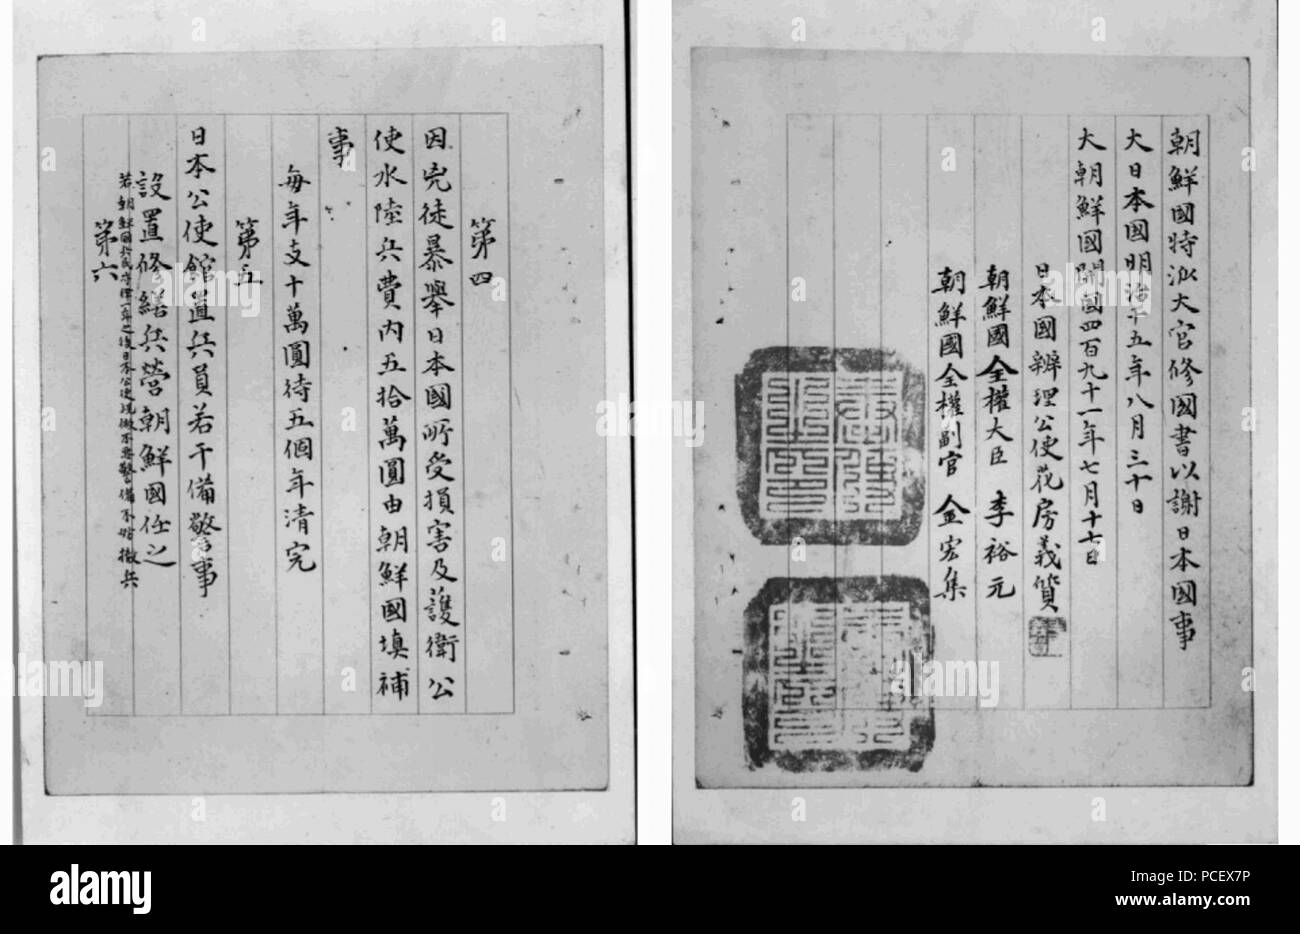 朝鮮國特派大官修國書以謝日本國事
大日本國明治十五年八月三十日
大朝鮮國開國四百九十一年七月十七日
日本國辨理公使花房義質
朝鮮國全權大臣 李裕元
朝鮮國全權副官 金宏集
第四
因兇徒暴擧日本國所受損害及護衛公
使水陸兵費內五拾萬圓由朝鮮國塡補
事
每年支十萬圓待五個年清完
第五
日本公使館置兵員若干備警事
設置修繕兵營朝鮮國任之
若朝鮮國兵民守律一年之後日本公使視做不要警備不妨撤兵
第六
alamy
Image ID: PCEX7P
www.alamy.com